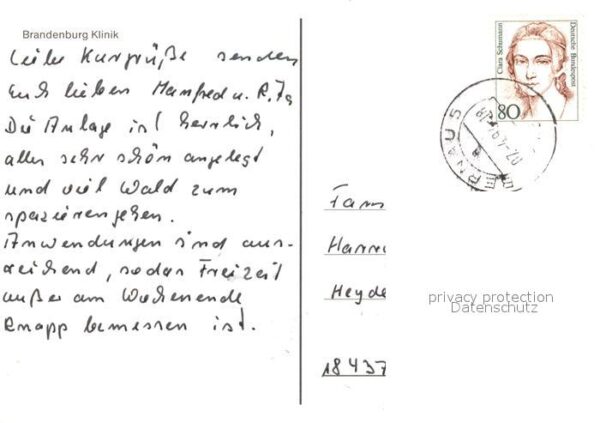 Brandenburg Klinik
Liebe Kurgrüße senden
Euch lieben Manfred u. R.
Die Anlage ist herrlich,
alles sehr schön angelegt
und viel Wald zum
spazierengehen.
Anwendungen sind aus-
reichend, sodaß Freizeit
außer am Wochenende
knapp bemessen ist.
Clara Schumann
Deutsche Bundespost
80
BERNAU 5
Fam
Hann
Heyde
18437
privacy protection
Datenschutz